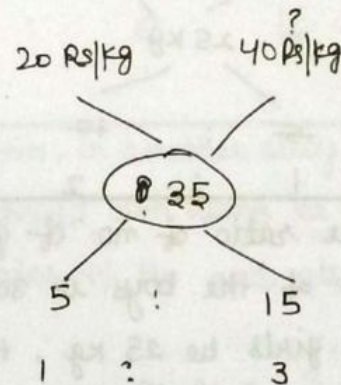 ?
20 Rs/kg 40 Rs/kg
35
5 : 15
1 : 3